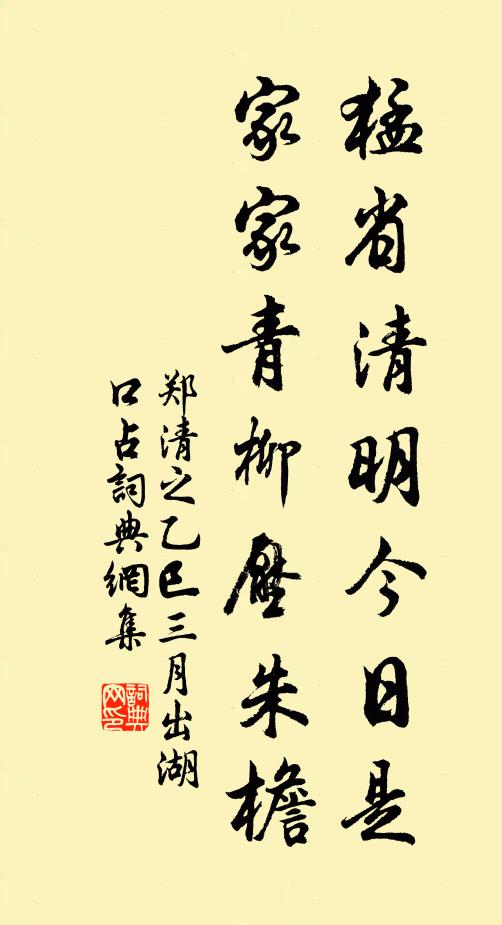 猛省清明今日是
家家青柳壓朱檐
郑清之乙巳三月出湖
口占詞典網集
詞典网印